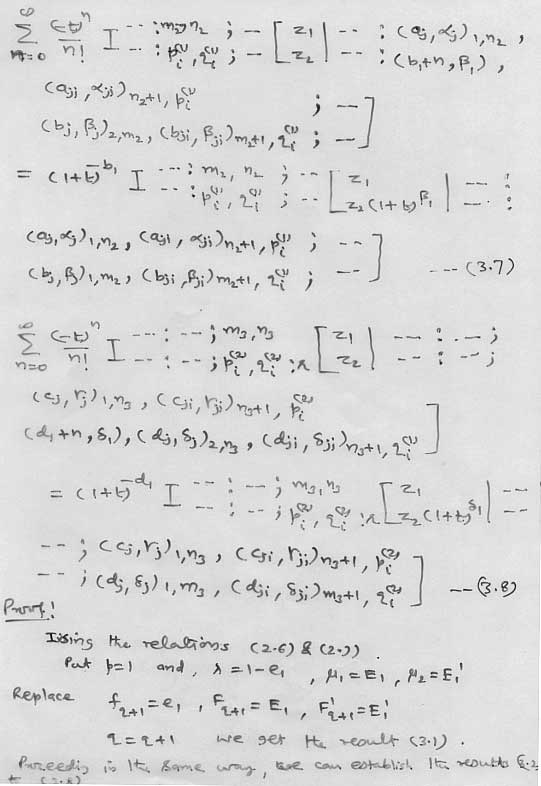 ∑_{n=0}^{∞} (-t)^n / n! I --- : m2, n2 ; -- / --- : p_i^{(1)}, q_i^{(1)} ; -- [ z1 / z2 | -- : (aj, αj)1,n2 , / -- : (b1+n, β1) ,
(aji, αji)n2+1, p_i^{(1)} ; --
(bj, βj)2,m2 , (bji, βji)m2+1, q_i^{(1)} ; -- ]
= (1+t)^{-b1} I --- : m2, n2 ; -- / --- : p_i^{(1)}, q_i^{(1)} ; -- [ z1 / z2 (1+t)^{β1} | --- : / --- :
(aj, αj)1,n2 , (aji, αji)n2+1, p_i^{(1)} ; --
(bj, β)1,m2 , (bji, βji)m2+1, q_i^{(1)} ; -- ] --- (3.7)
∑_{n=0}^{∞} (-t)^n / n! I --- : -- ; m3, n3 / --- : -- ; p_i^{(2)}, q_i^{(2)} : r [ z1 / z2 | --- : -- ; / -- : -- ;
(cj, γj)1,n3 , (cji, γji)n3+1, p_i^{(2)}
(d1+n, δ1), (dj, δj)2,n3 , (dji, δji)n3+1, q_i^{(2)} ]
= (1+t)^{-d1} I -- : -- ; m3, n3 / -- : -- ; p_i^{(2)}, q_i^{(2)} : r [ z1 / z2 (1+t)^{δ1} | --- / ---
-- ; (cj, γj)1,n3 , (cji, γji)n3+1, p_i^{(2)}
-- ; (dj, δj)1,m3 , (dji, δji)m3+1, q_i^{(2)} ] -- (3.8)
Proof!
Using the relations (2.6) & (2.7)
Put p=1 and, λ = 1-e1 , μ1 = E1 , μ2 = E1'
Replace f_{q+1} = e1 , F_{q+1} = E1 , F'_{q+1} = E1'
q = q+1 we get the result (3.1) .
Proceeding in the same way, we can establish the results (3.2
t (3.8)